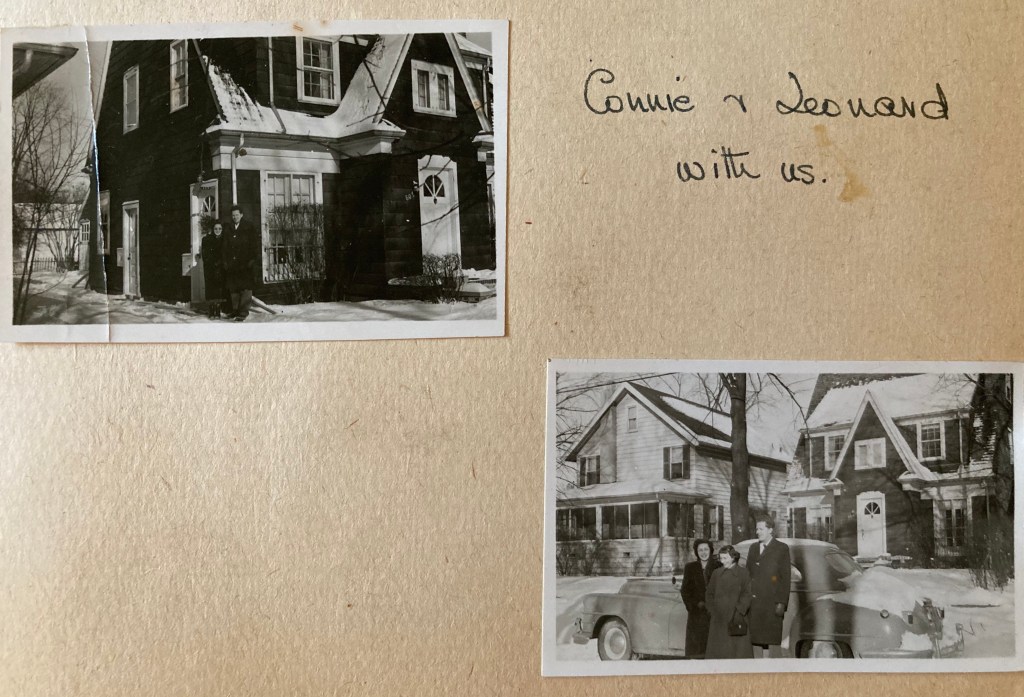 Connie & Leonard
with us.